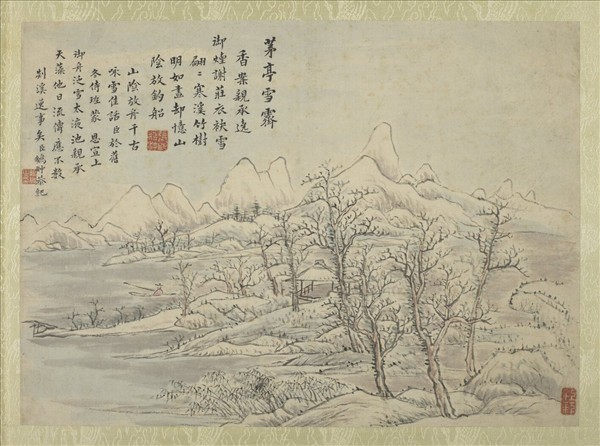 茅亭雪霽
香案親承
御煙謝莊衣袂雪
翩〻寒溪竹樹
明如畫却憶山
陰放釣船
山陰放舟千古
咏雪佳話臣於舊
冬侍班蒙 恩宣上
御舟泛雪太液池親承
天藻他日流傳應不數
剡溪事矣臣鵬翀恭記